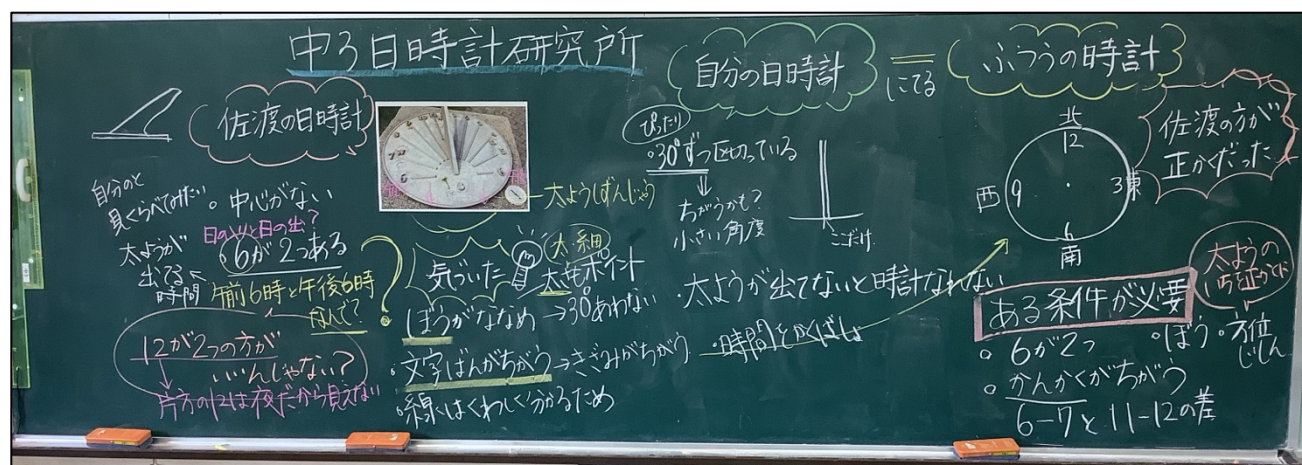 中3日時計研究所
佐渡の日時計
自分のと
見くらべてみたい
太ようが
出てる
時間
・中心がない
日の入りと日の出?
・6が2つある
午前6時と午後6時
なんで?
12が2つの方が
いいんじゃない?
片方の12は夜だから見えない
太ようしずんじゃう
気づいた
太・細
太もポイント
ぼうがななめ→30°あわない
・文字ばんがちがう→きざみがちがう
・線くはくわしく分かるため
自分の日時計
にてる
ふつうの時計
ぴったり
・30°ずつ区切っている
ちがうかも?
小さい角度
ここだけ
・太ようが出てないと時計なれない
北
12
西
9
3
東
6
南
佐渡の方が
正かくだった
太ようの
ある条件が必要
・6が2つ
・ぼう
・方位
じしん
・かんかくがちがう
6-7と11-12の差